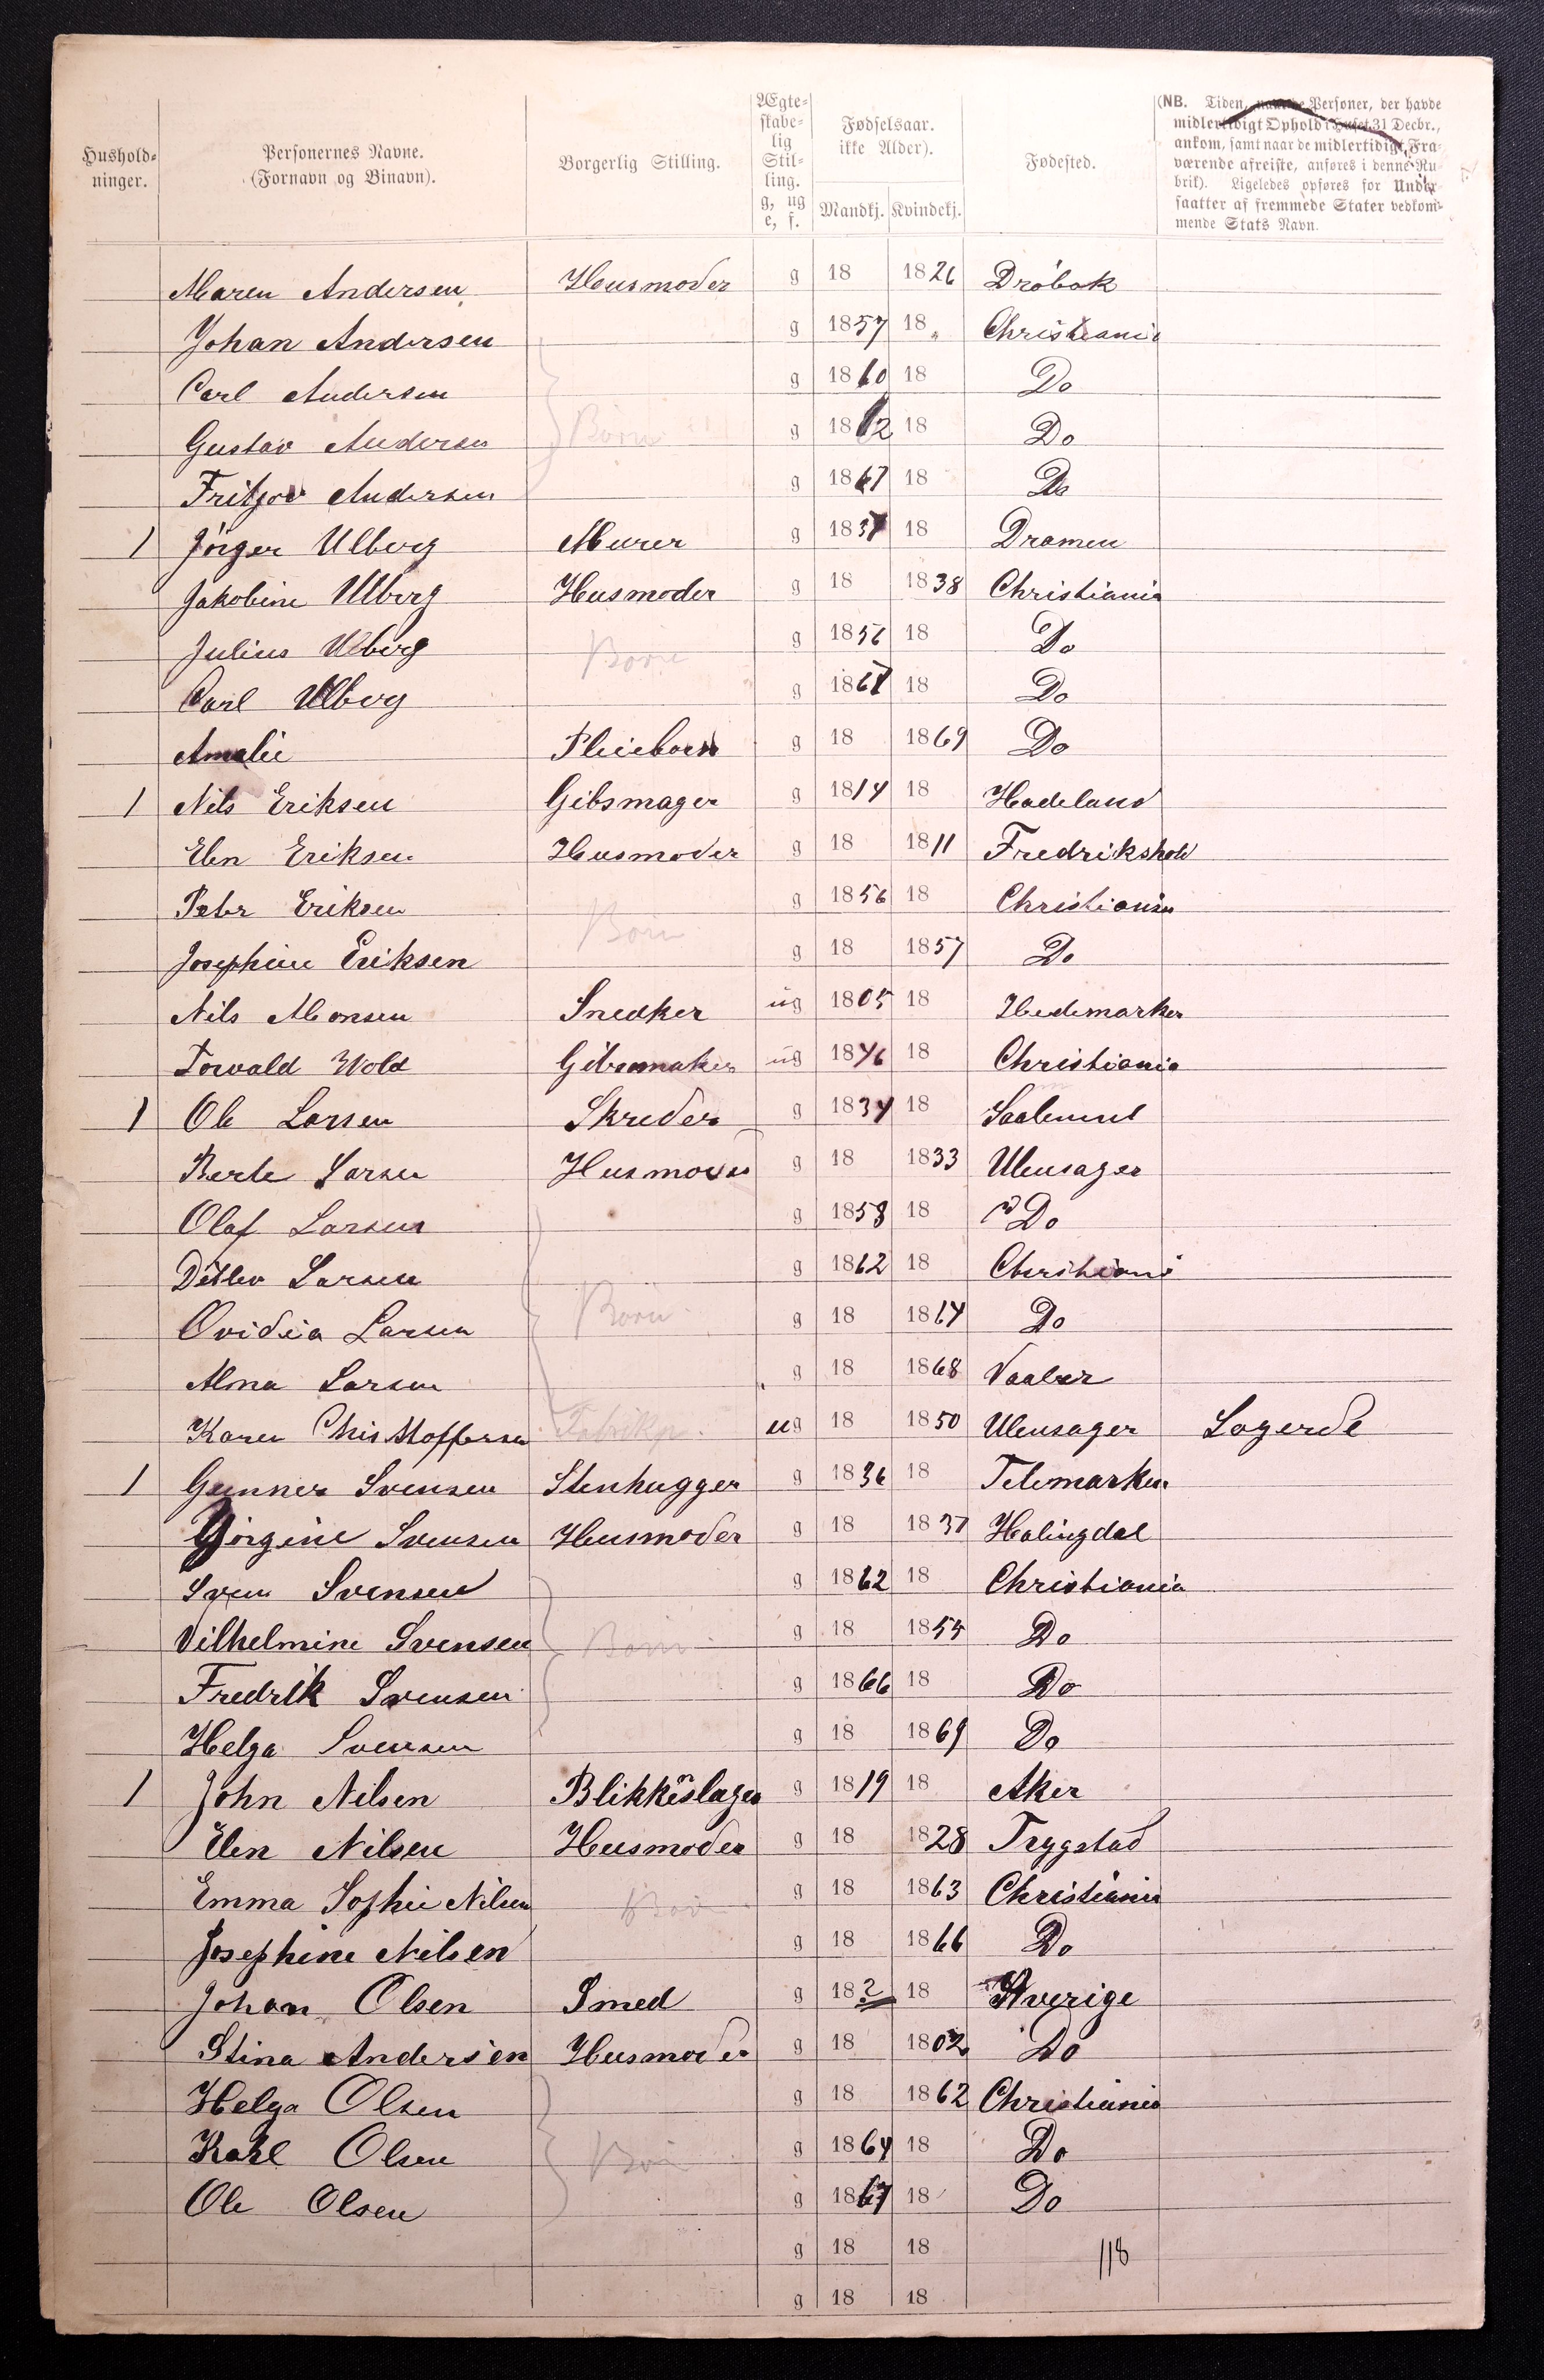 Hushold-
ninger.
Personernes Navne.
(Fornavn og Binavn).
Borgerlig Stilling.
Ægte-
skabe-
lig
Stil-
ling.
g, ug
e, f.
Fødselsaar.
ikke Alder).
Mandkj. Kvindekj.
Fødested.
(NB. Tiden, naar de Personer, der havde
midlertidigt Ophold i Huset 31 Decbr.,
ankom, samt naar de midlertidigt Fra-
værende afreiste, anføres i denne Ru-
brik). Ligeledes opføres for Under-
saatter af fremmede Stater vedkom-
mende Stats Navn.
Maren Andersen Husmoder g 18 1826 Dröbak
Johan Andersen g 1857 18 „ Christiania
Carl Andersen g 1860 18 Do
Gustav Andersen Börn g 1862 18 Do
Fritjov Andersen g 1867 18 Do
1 Jörger Ulberg Murer g 1837 18 Dramen
Jakobine Ulberg Husmoder g 18 1838 Christiania
Julius Ulberg Börn g 1856 18 Do
Carl Ulberg g 1868 18 Do
Amalie Pleiebarn g 18 1869 Do
1 Nils Eriksen Gibsmager g 1814 18 Hadeland
Elen Eriksen Husmoder g 18 1811 Fredrikshald
Peter Eriksen g 1856 18 Christiania
Josephine Eriksen Börn g 18 1857 Do
Nils Monsen Snedker ug 1805 18 Hedemarken
Torvald Wold Gibsmaker ug 1846 18 Christiania
1 Ole Larsen Skreder g 1834 18 
Berte Larsen Husmoder g 18 1833 Ulensager
Olaf Larsen g 1858 18 Do
Ditlev Larsen g 1862 18 Christiani
Ovidia Larsen Börn g 18 1864 Do
Alma Larsen g 18 1868 Vaaler
Karen Christoffersen Fabrikp. ug 18 1850 Ulensager Logerde
1 Gunner Svensen Stenhugger g 1836 18 Telemarken
Görgine Svensen Husmoder g 18 1837 Halingdal
Sven Svensen g 1862 18 Christiania
Vilhelmine Svensen Börn g 18 1855 Do
Fredrik Svensen g 1866 18 Do
Helga Svensen g 18 1869 Do
1 John Nilsen Blikkenslager g 1819 18 Aker
Elen Nilsen Husmoder g 18 1828 Trygstad
Emma Sophie Nilsen Börn g 18 1863 Christiania
Josephine Nilsen g 18 1866 Do
Johan Olsen Smed g 182 18 Sverige
Stina Andersen Husmoder g 18 1802 Do
Helga Olsen g 18 1862 Christiania
Karl Olsen Börn g 1864 18 Do
Ole Olsen g 1867 18 Do
g 18 18 118
g 18 18